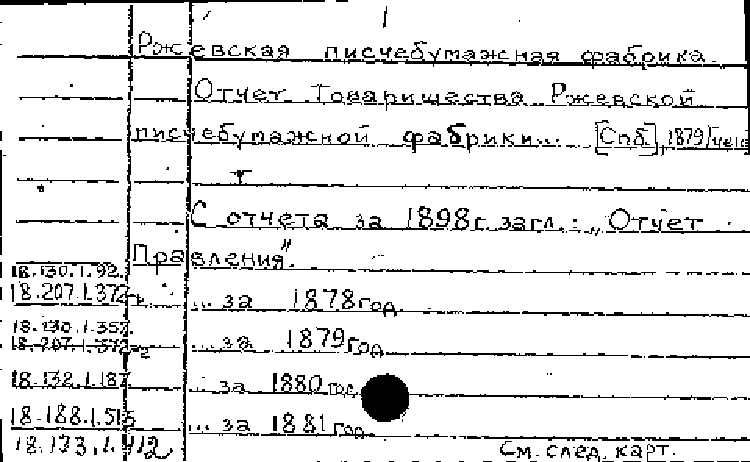 Ржевская писчебумажная фабрика.
Отчет Товарищества Ржевской
писчебумажной фабрики... [Спб], 1879/
С отчета за 1898г. загл.: „Отчет
Правления".
18.130.1.92.
18.207.1.372
... за 1878год
18.130.1.352.
... за 1879год
18.132.1.187
... за 1880год
18.188.1.515
... за 1881год
18.173.1.412.
См. след. карт.